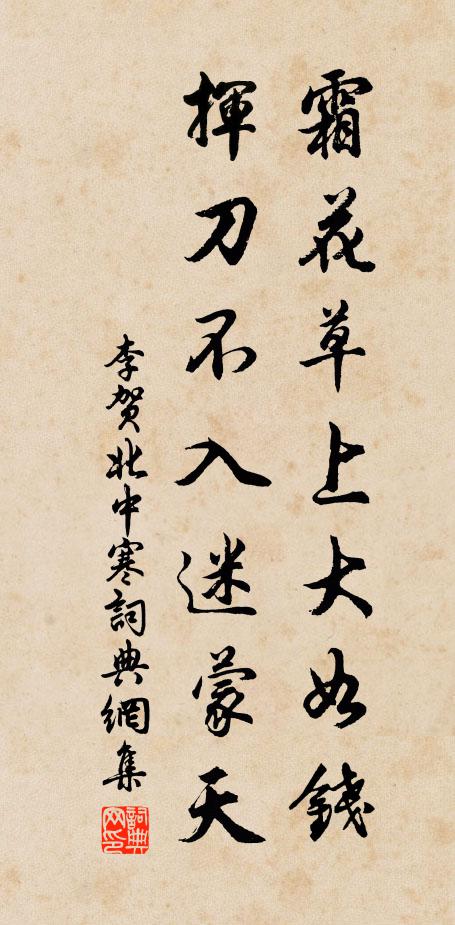 霜花草上大如錢
揮刀不入迷蒙天
李贺北中寒詞典網集
詞典
网印